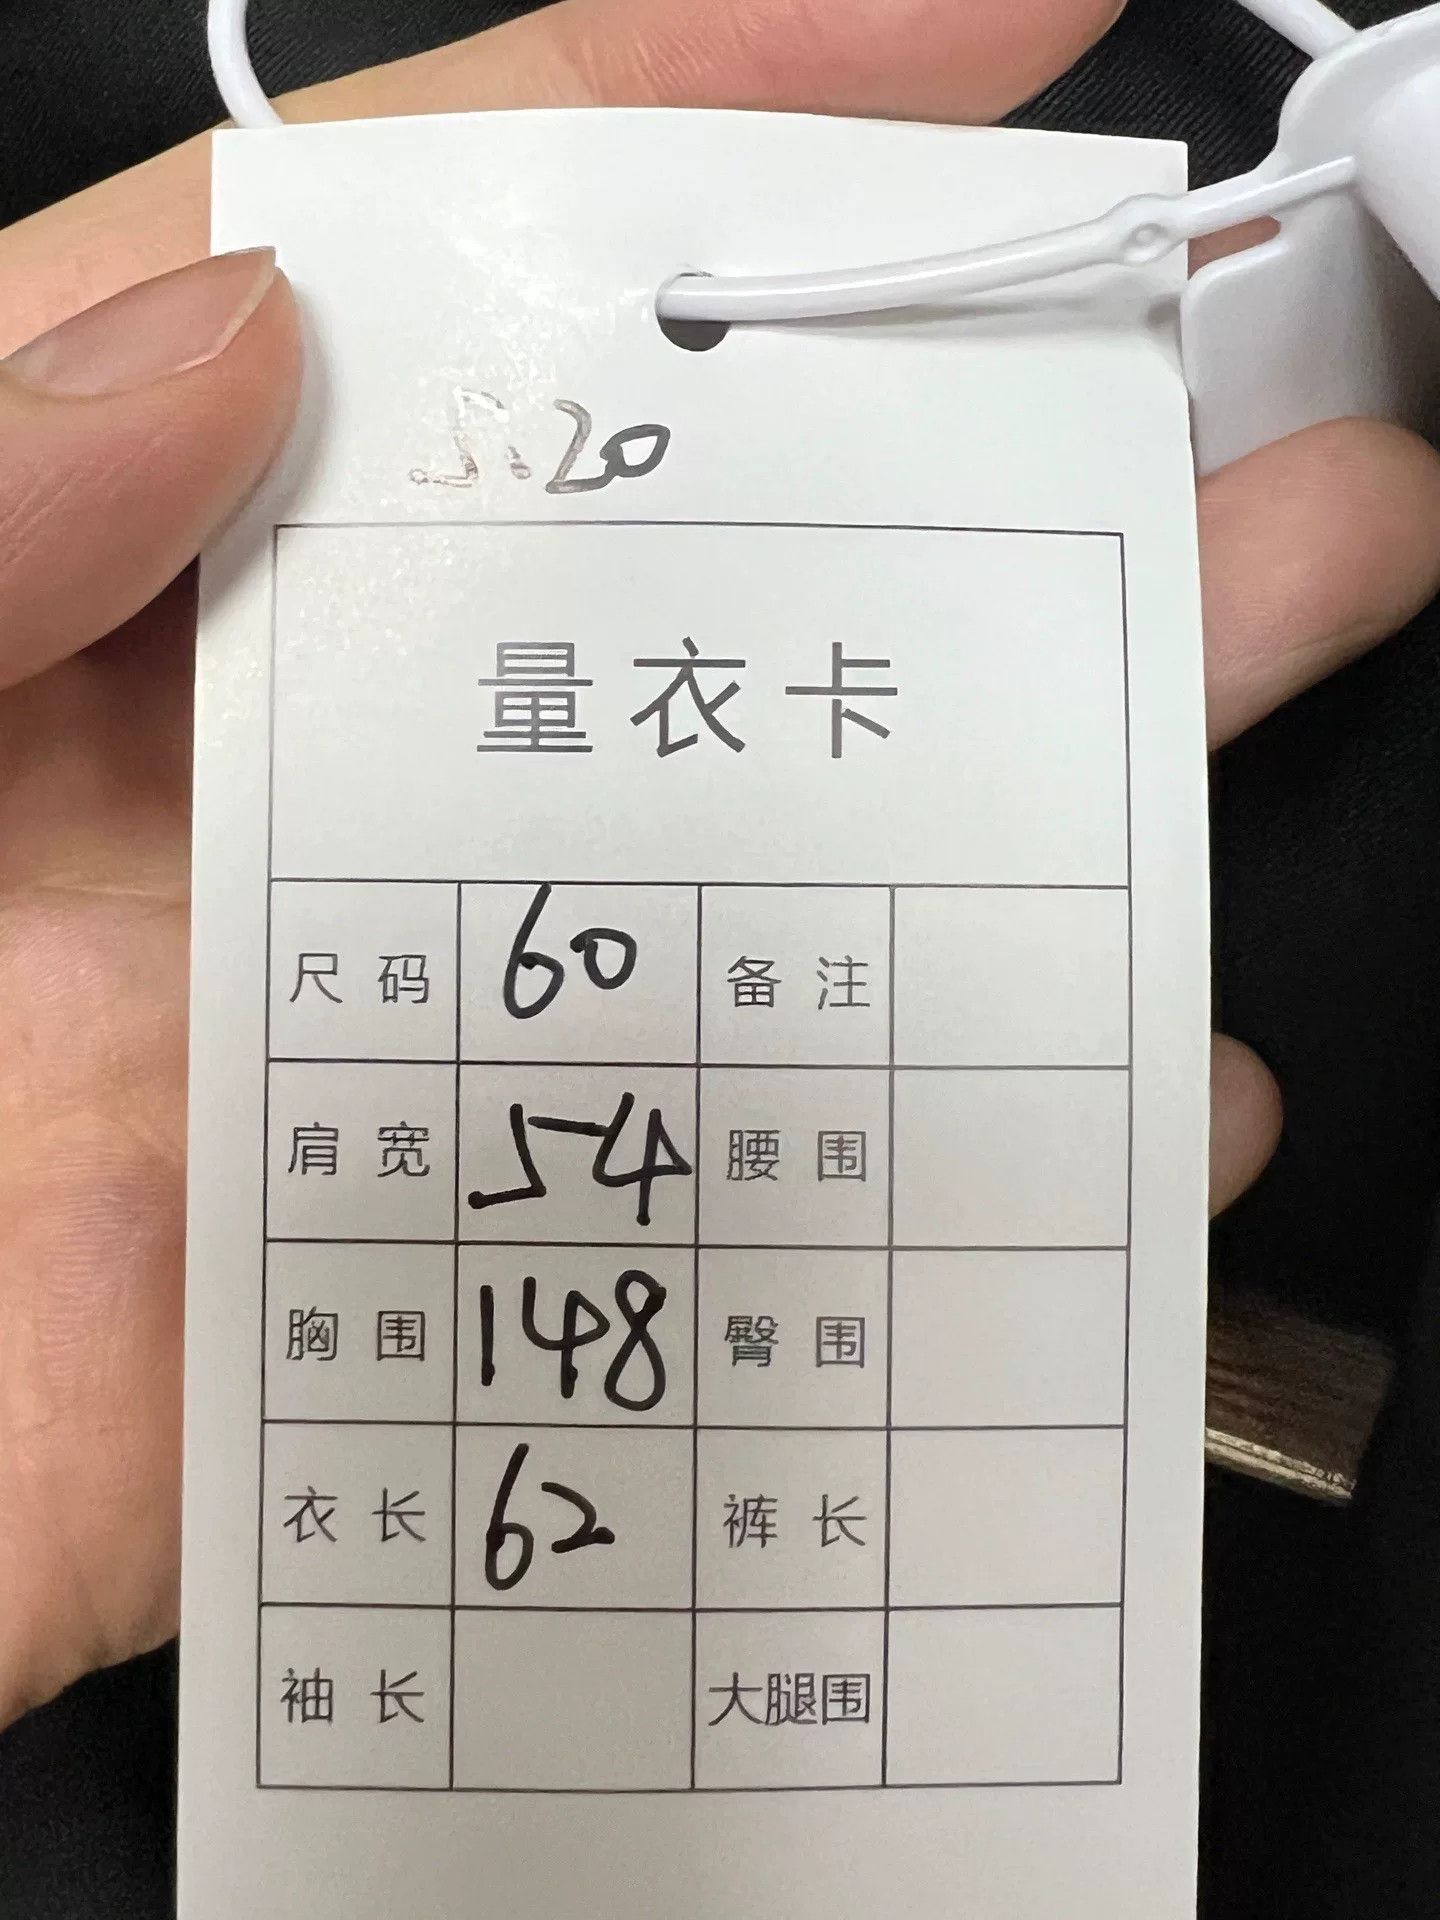 5.20
量衣卡
尺码 60 备注
肩宽 54 腰围
胸围 148 臀围
衣长 62 裤长
袖长 大腿围